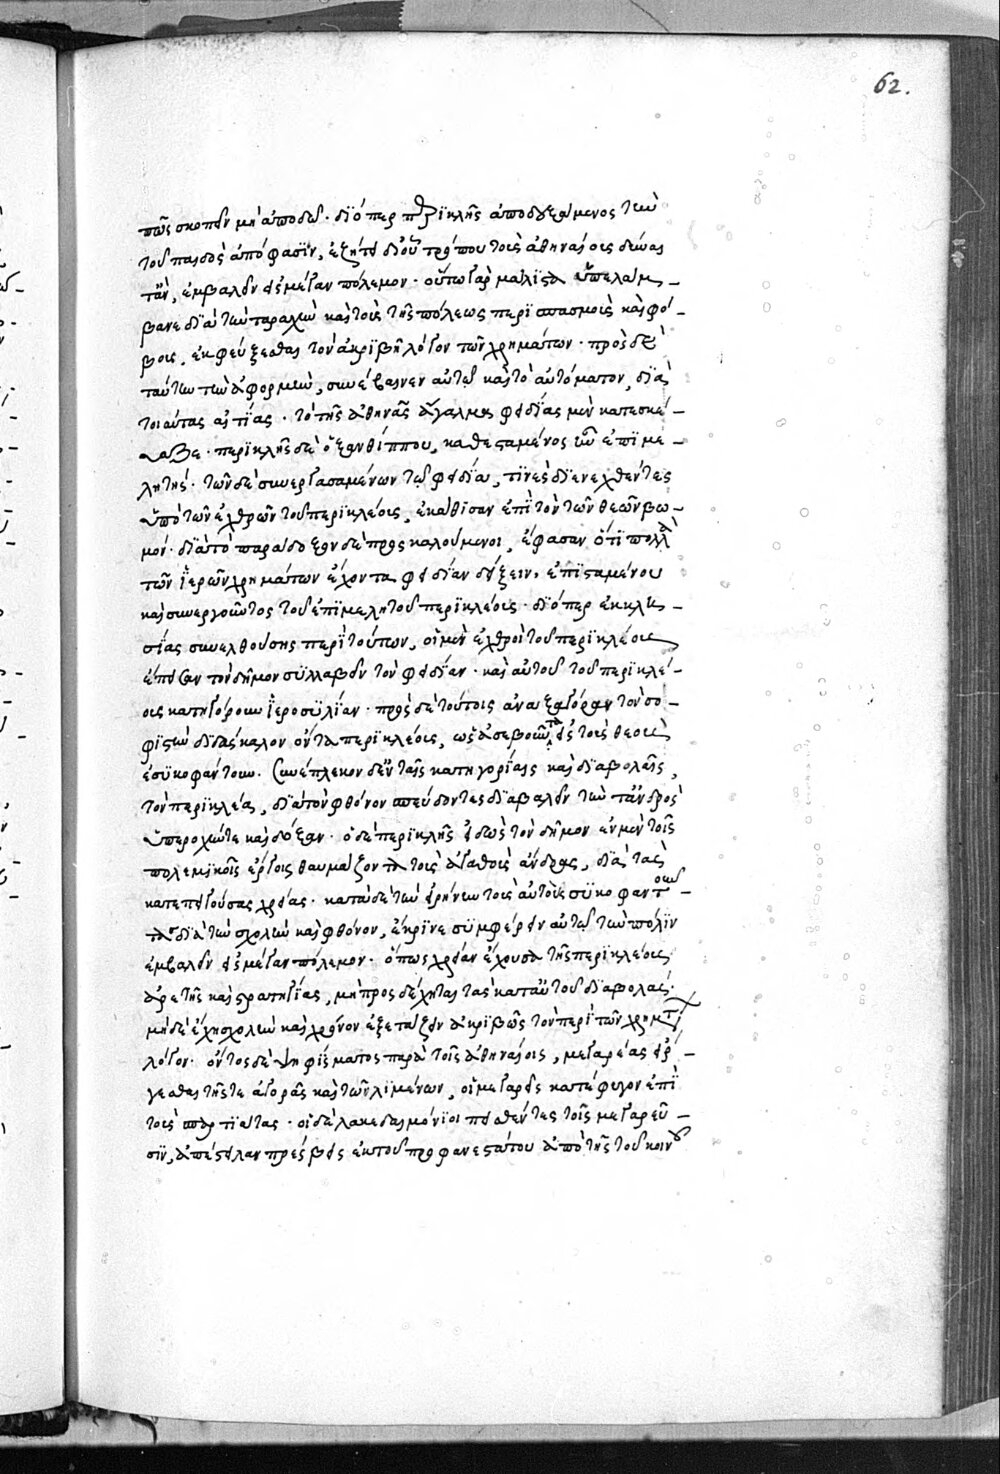 62.
πῶς σκοπεῖν μὴ ἀποδῷ· διόπερ περικλῆς ἀποδεξάμενος τὴν
τοῦ παιδὸς ἀπόφασιν, ἐζήτει δι' οὗ τρόπου τοὺς ἀθηναίους
ἐμβαλεῖν εἰς μέγαν πόλεμον· οὕτω γὰρ μάλιστα ὑπελάμ-
βανε διὰ τὴν ταραχὴν καὶ τοὺς τῆς πόλεως περισπασμοὺς καὶ φό-
βους, ἐκφεύξεσθαι τὸν ἀκριβῆ λόγον τῶν χρημάτων· πρὸς δὲ
ταύτην τὴν ἀφορμὴν, συνέβαινεν αὐτῷ καὶ τὸ αὐτόματον, διὰ
τοιαύτας αἰτίας· τὸ τῆς ἀθηνᾶς ἄγαλμα φειδίας μὲν κατεσκεύ-
περικλῆς δὲ ὁ ξανθίππου, καθεσταμένος ἦν ἐπιμε-
λητής· τῶν δὲ συνεργασαμένων τῷ φειδίᾳ, τινὲς διενεχθέντες
ὑπὸ τῶν ἐχθρῶν τοῦ περικλέους, ἐκάθισαν ἐπὶ τὸν τῶν θεῶν βω-
μόν· διὰ τὸ παράδοξον δὲ προσκαλούμενοι, ἔφασαν ὅτι πολλὰ
τῶν ἱερῶν χρημάτων ἔχοντα φειδίαν δείξειν, ἐπισταμένου
καὶ συνεργοῦντος τοῦ ἐπιμελητοῦ περικλέους· διόπερ ἐκκλη-
σίας συνελθούσης περὶ τούτων, οἱ μὲν ἐχθροὶ τοῦ περικλέους
ἔπεισαν τὸν δῆμον συλλαβεῖν τὸν φειδίαν· καὶ αὐτοῦ τοῦ περικλέ-
ους κατηγόρουν ἱεροσυλίαν· πρὸς δὲ τούτοις ἀναξαγόραν τὸν σο-
φιστὴν διδάσκαλον ὄντα περικλέους, ὡς ἀσεβοῦντα εἰς τοὺς θεοὺς
ἐσυκοφάντουν. συνέπλεκον δ' ἐν ταῖς κατηγορίαις καὶ διαβολαῖς,
τὸν περικλέα, διὰ τὸν φθόνον σπεύδοντες διαβαλεῖν τὴν τἀνδρὸς
ὑπεροχήν τε καὶ δόξαν· ὁ δὲ περικλῆς εἰδὼς τὸν δῆμον ἐν μὲν τοῖς
πολεμικοῖς ἔργοις θαυμάζοντα τοὺς ἀγαθοὺς ἄνδρας, διὰ τὰς
κατεπειγούσας χρείας· κατὰ δὲ τὴν εἰρήνην τοὺς αὐτοὺς συκοφαντοῦν-
τα διὰ τὴν σχολὴν καὶ φθόνον, ἔκρινε συμφέρειν αὐτῷ τὴν πόλιν
ἐμβαλεῖν εἰς μέγαν πόλεμον· ὅπως χρείαν ἔχουσα τῆς περικλέους
ἀρετῆς καὶ στρατηγίας, μὴ προσδέχηται τὰς κατ' αὐτοῦ διαβολάς·
μηδὲ ἔχῃ σχολὴν καὶ χρόνον ἐξετάζειν ἀκριβῶς τὸν περὶ τῶν χρημάτων
λόγον· ὄντος δὲ ψηφίσματος παρὰ τοῖς ἀθηναίοις, μεγαρέας εἴρ-
γεσθαι τῆς τε ἀγορᾶς καὶ τῶν λιμένων, οἱ μεγαρεῖς κατέφυγον ἐπὶ
τοὺς σπαρτιάτας· οἱ δὲ λακεδαιμόνιοι πεισθέντες τοῖς μεγαρεῦ-
σιν, ἀπέστειλαν πρέσβεις ἐκ τοῦ προφανεστάτου ἀπὸ τῆς τοῦ κοινοῦ